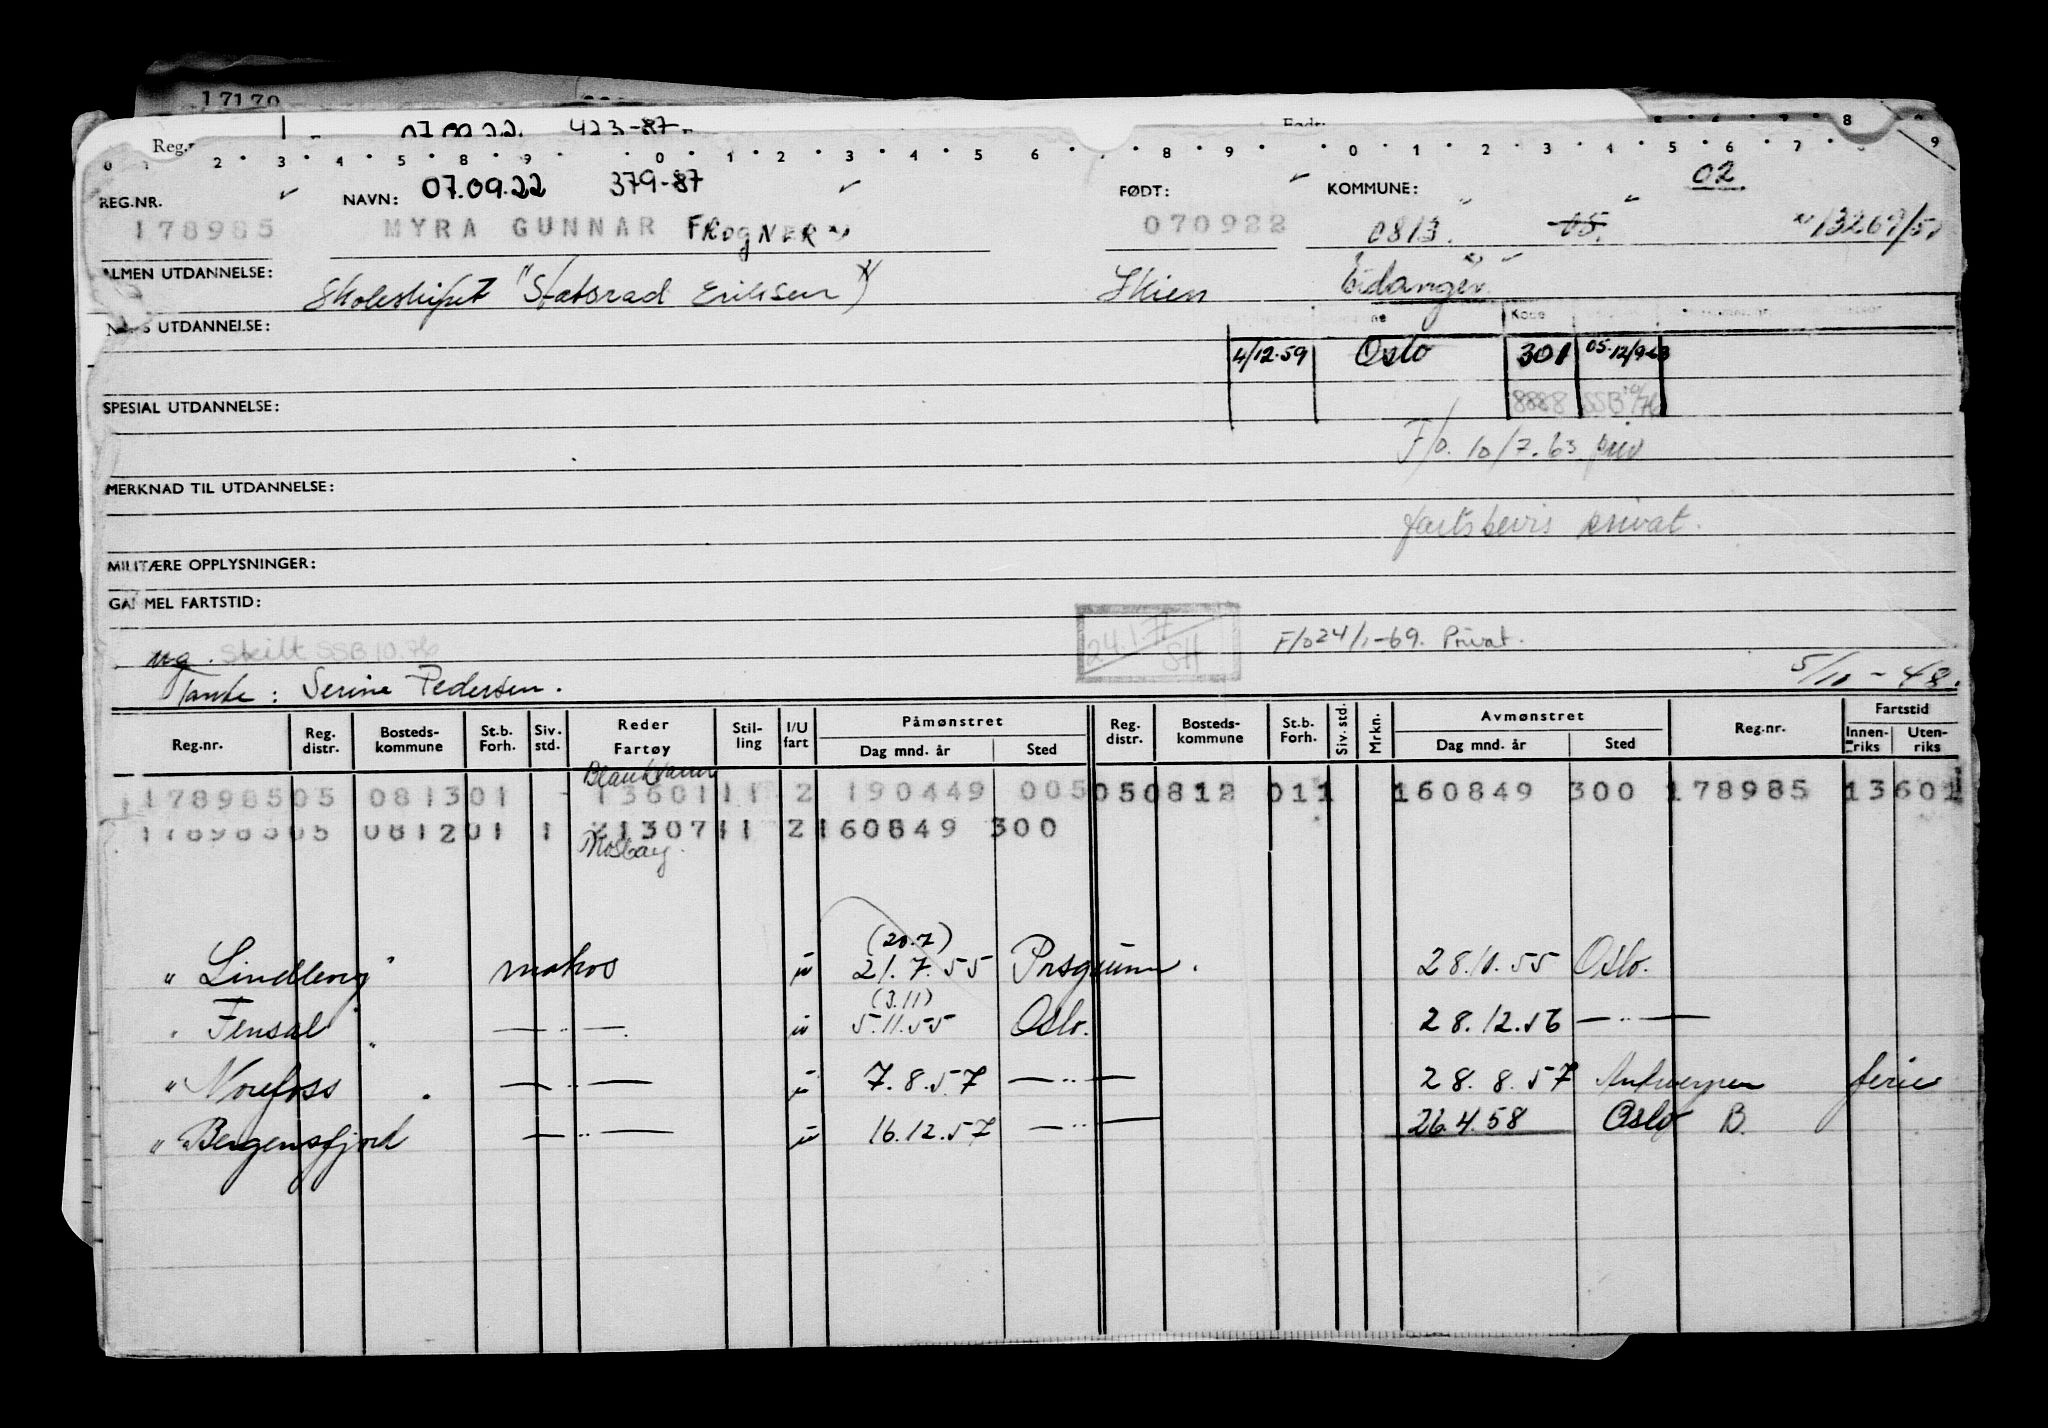 17170
Reg.n 07.09.22. 423-87 Født: 8
0 2 3 4 5 8 9 0 1 2 3 4 5 6 8 9 0 1 2 3 4 5 6 7 9
REG.NR. NAVN: 07.09.22 379-87 FØDT: KOMMUNE: 02
178985 MYRA GUNNAR FROGNER 070922 0813. 05.
ALMEN UTDANNELSE: Skoleskipet "Statsrad Eriksen" Skien Eidanger
UTDANNELSE: Kode
4/12.59 Oslo 301 05.12/9-63
SPESIAL UTDANNELSE: 8888 SSB 10/76
F/o. 10/7.63 priv
MERKNAD TIL UTDANNELSE:
fartsbevis privat.
MILITÆRE OPPLYSNINGER:
GAMMEL FARTSTID:
ug. Skilt SSB 10.76 SH F/o 24/1-69. Privat.
Tante: Serine Pedersen. 5/10-48.
Reg.nr. Reg. distr. Bosteds- kommune St.b. Forh. Siv. std. Reder Fartøy Stil- ling I/U fart Påmønstret Dag mnd. år Sted Reg. distr. Bosteds- kommune St.b. Forh. Siv. std. Mrkn. Avmønstret Dag mnd. år Sted Reg.nr. Fartstid Innen- riks Uten- riks
Blankvann
178985 05 0813 01 1360111 2 190449 005 05 0812 01 1 160849 300 178985 13601
178985 05 0812 01 1 2130711 2 160849 300
Mosbay.
(20.7)
" Lindberg" matros u 21.7.55 Prsgrunn. 28.10.55 Oslo.
(3.11)
" Fensal" — " — u 5.11.55 Oslo. 28.12.56 — " —
" Norefoss" — " — u 7.8.57 — " — 28.8.57 Antwerpen ferie
" Bergensfjord — " — u 16.12.57 — " — 26.4.58 Oslo B.